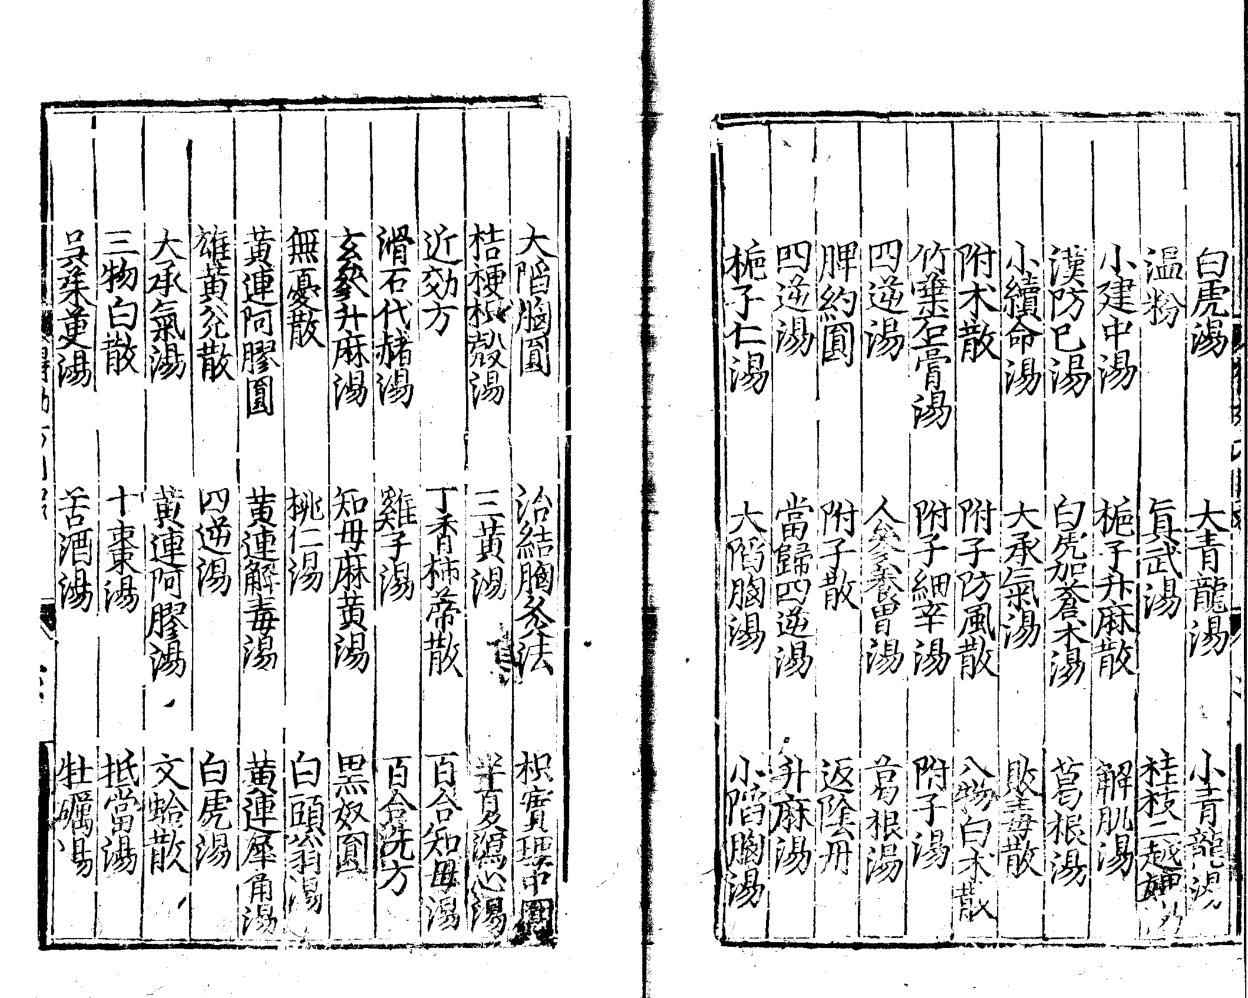 白虎湯 大青龍湯 小青龍湯
温粉 眞武湯 桂枝二越婢一湯
小建中湯 梔子升麻散 解肌湯
漢防已湯 白虎加蒼术湯 葛根湯
小續命湯 大承氣湯 敗毒散
附术散 附子防風散 八物白术散
竹葉石膏湯 附子細辛湯 附子湯
四逆湯 人參養胃湯 葛根湯
脾約圓 附子散 返陰丹
四逆湯 當歸四逆湯 升麻湯
梔子仁湯 大陷胸湯 小陷胸湯
大陷胸圓 治結胸灸法 枳實理中圓
桔梗枳殼湯 三黃湯 半夏瀉心湯
近効方 丁香柿蒂散 百合知母湯
滑石代赭湯 雞子湯 百合洗方
玄參升麻湯 知母麻黃湯 黑奴圓
無憂散 桃仁湯 白頭翁湯
黃連阿膠圓 黃連解毒湯 黃連犀角湯
雄黃兊散 四逆湯 白虎湯
大承氣湯 黃連阿膠湯 文蛤散
三物白散 十棗湯 抵當湯
吳茱萸湯 苦酒湯 牡礪湯